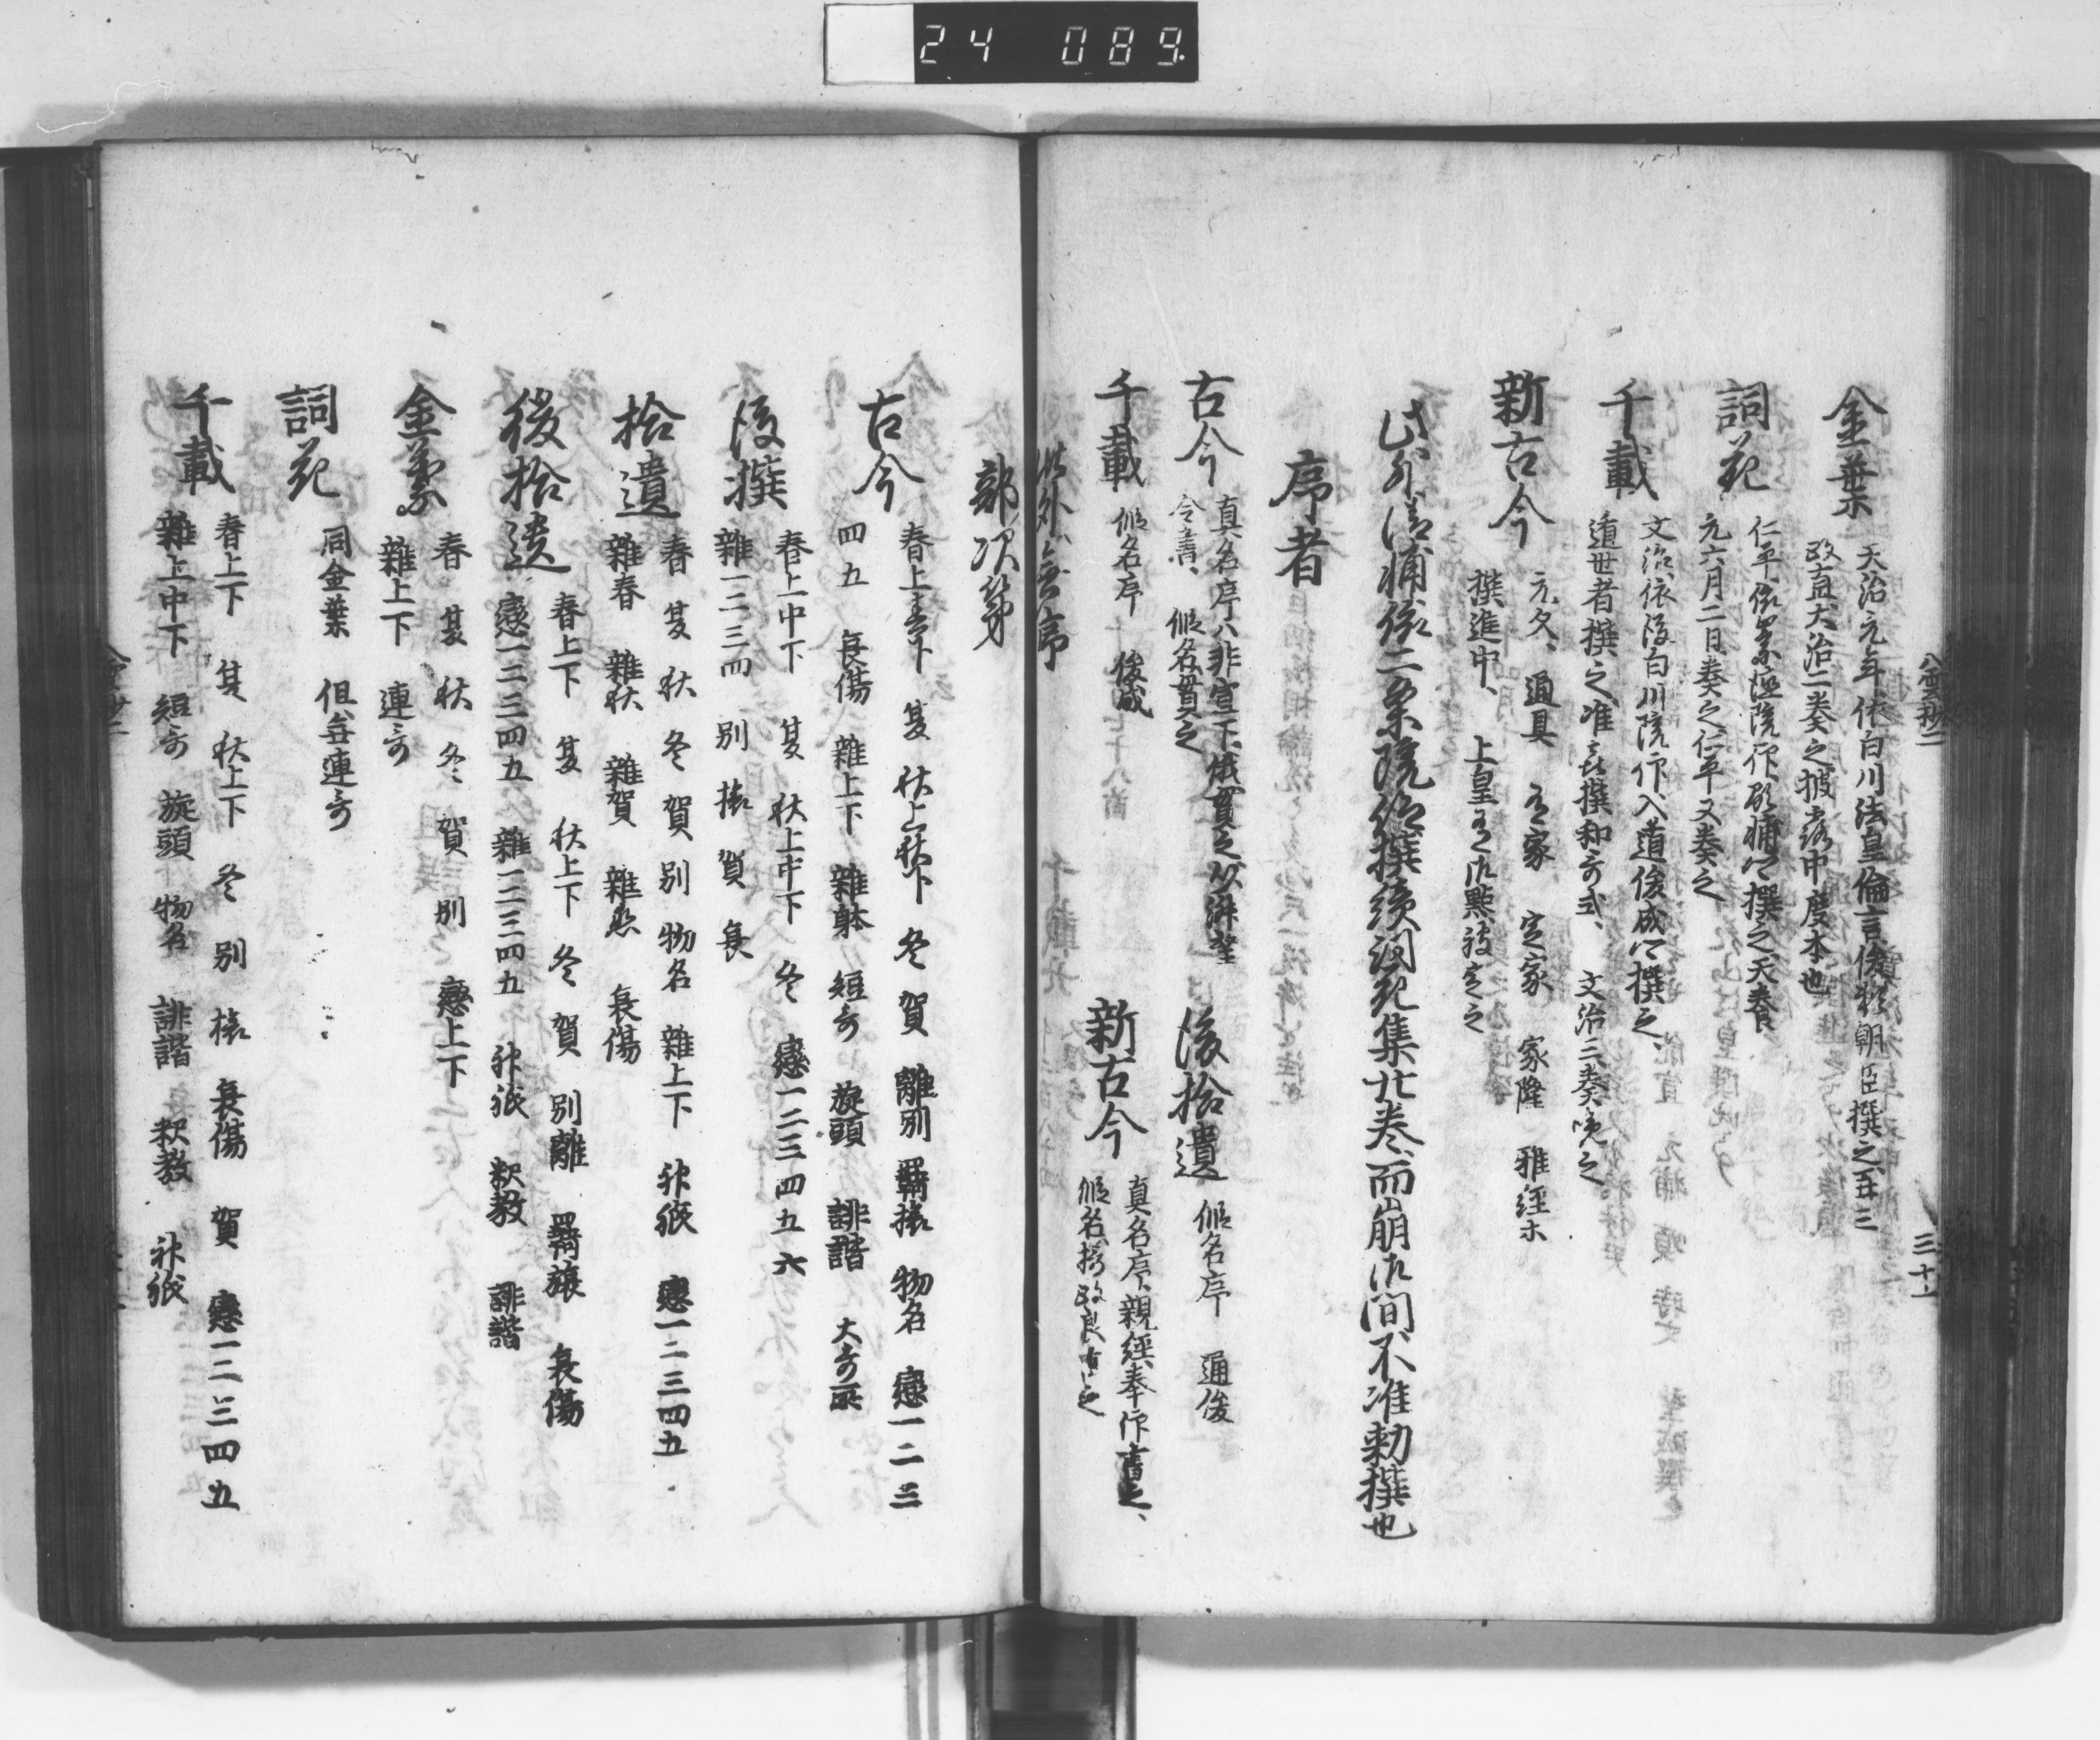 24 089
八雲抄二
三十
金葉
天治元年依白川法皇倫言俊頼朝臣撰之再三
改直大治二奏之披露中度本也
詞花
仁平依崇徳院仰顕輔卿撰之天養
元六月二日奏之仁平又奏之
千載
文治依後白川院仰入道俊成卿撰之
遁世者撰之准喜撰和哥式 文治三奏覧之
新古今
元久 通具 有家 定家 家隆 雅経ホ
撰進中 上皇有御點被定之
此外清輔依二条院仰撰続詞花集廿巻而崩御間不准勅撰也
序者
古今
真名序ハ非宣下俄貫之以淑望
令書 仮名貫之
後拾遺
仮名序 通俊
千載
仮名序 俊成
新古今
真名序親経奉仰書之
仮名摂政良
此外無序
部次第
古今
春上春下 夏 秋上秋下 冬 賀 離別 羇旅 物名 戀一二三
四五 哀傷 雜上下 雜躰 短哥 旋頭 誹諧 大哥所
後撰
春上中下 夏 秋上中下 冬 戀一二三四五六
雜一二三四 別 旅 賀 哀
拾遺
春 夏 秋 冬 賀 別 物名 雜上下 神祇 戀一二三四五
雜春 雜秋 雜賀 雜恋 哀傷
後拾遺
春上下 夏 秋上下 冬 賀 別離 羇旅 哀傷
戀一二三四五 雜一二三四五 神祇 釈教 誹諧
金葉
春 夏 秋 冬 賀 別 戀上下
雜上下 連哥
詞花
同金葉 但無連哥
千載
春上下 夏 秋上下 冬 別 旅 哀傷 賀 戀一二三四五
雜上中下 短哥 旋頭 物名 誹諧 釈教 神祇